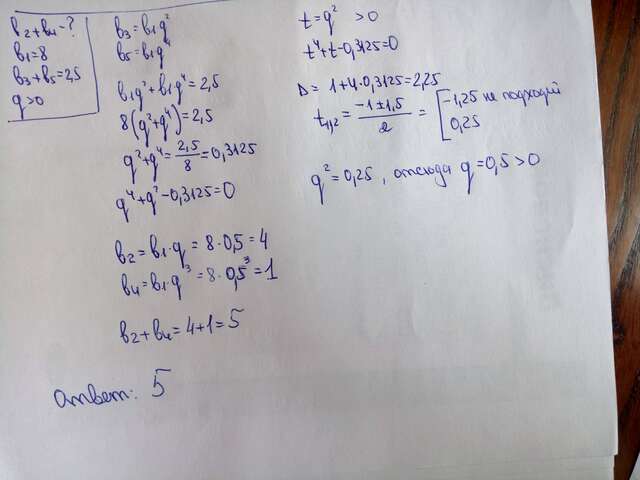 b₂+b₄-?
b₁=8
b₃+b₅=2,5
q>0
b₃=b₁q²
b₅=b₁q⁴
b₁q²+b₁q⁴=2,5
8(q²+q⁴)=2,5
q²+q⁴=2,5/8=0,3125
q⁴+q²-0,3125=0
b₂=b₁·q=8·0,5=4
b₄=b₁·q³=8·0,5³=1
b₂+b₄=4+1=5
ответ: 5
t=q² >0
t⁴+t-0,3125=0
D=1+4·0,3125=2,25
t₁,₂=(-1±1,5)/2=[-1,25 не подходит
0,25
q²=0,25, отсюда q=0,5>0